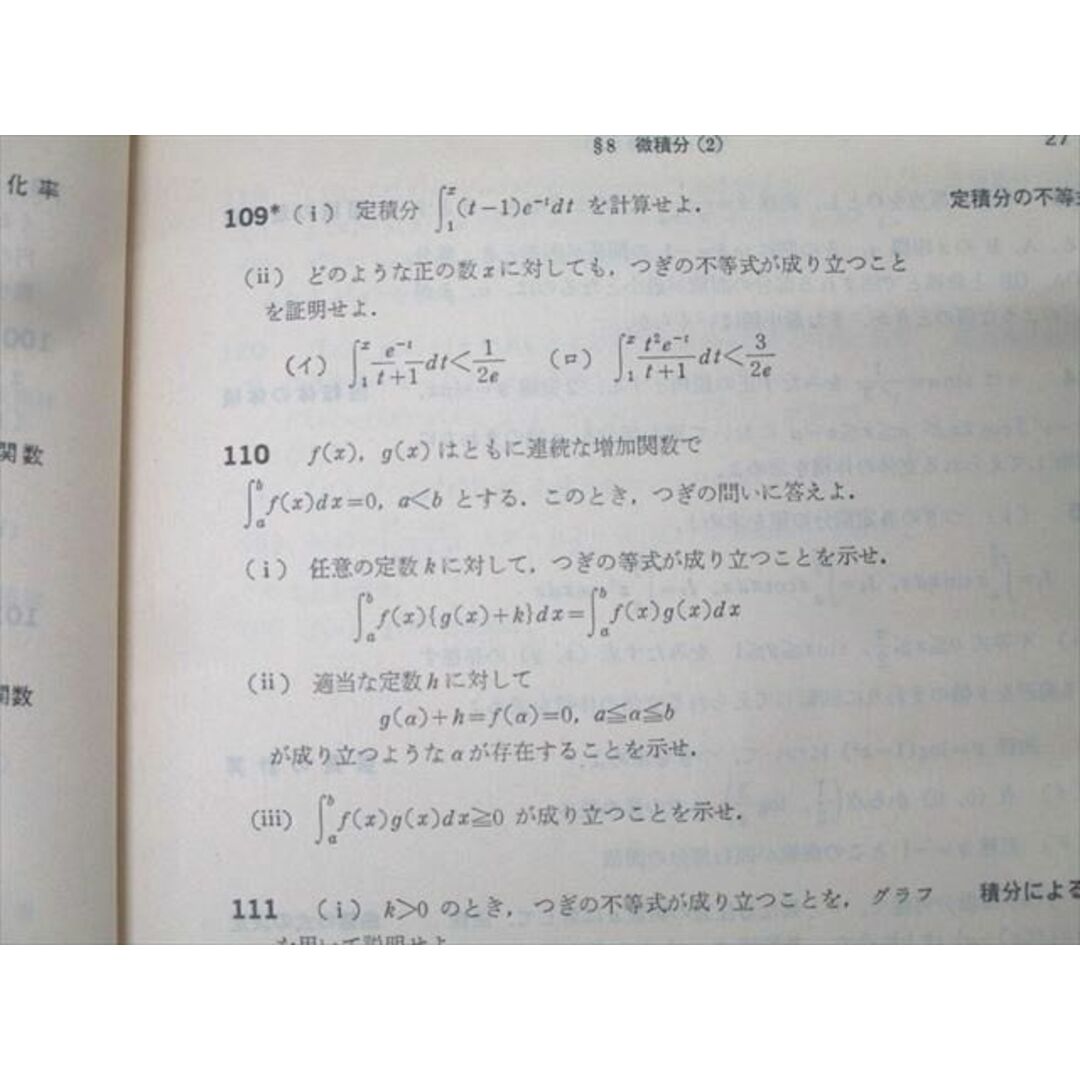 §8 微積分(2)
27
化率
109* (i) 定積分 ∫₁ˣ(t−1)e⁻ᵗdt を計算せよ.
定積分の不等式
(ii) どのような正の数xに対しても,つぎの不等式が成り立つこと
を証明せよ.
(イ) ∫₁ˣ e⁻ᵗ/(t+1) dt < 1/2e (ロ) ∫₁ˣ t²e⁻ᵗ/(t+1) dt < 3/2e
関数
110 f(x), g(x)はともに連続な増加関数で
∫ₐᵇ f(x)dx=0, a<b とする.このとき,つぎの問いに答えよ.
(i) 任意の定数kに対して,つぎの等式が成り立つことを示せ.
∫ₐᵇ f(x){g(x)+k}dx=∫ₐᵇ f(x)g(x)dx
関数
(ii) 適当な定数hに対して
g(α)+h=f(α)=0, a≦α≦b
が成り立つようなαが存在することを示せ.
(iii) ∫ₐᵇ f(x)g(x)dx≧0 が成り立つことを示せ.
111 (i) k>0 のとき,つぎの不等式が成り立つことを,グラフ
積分による